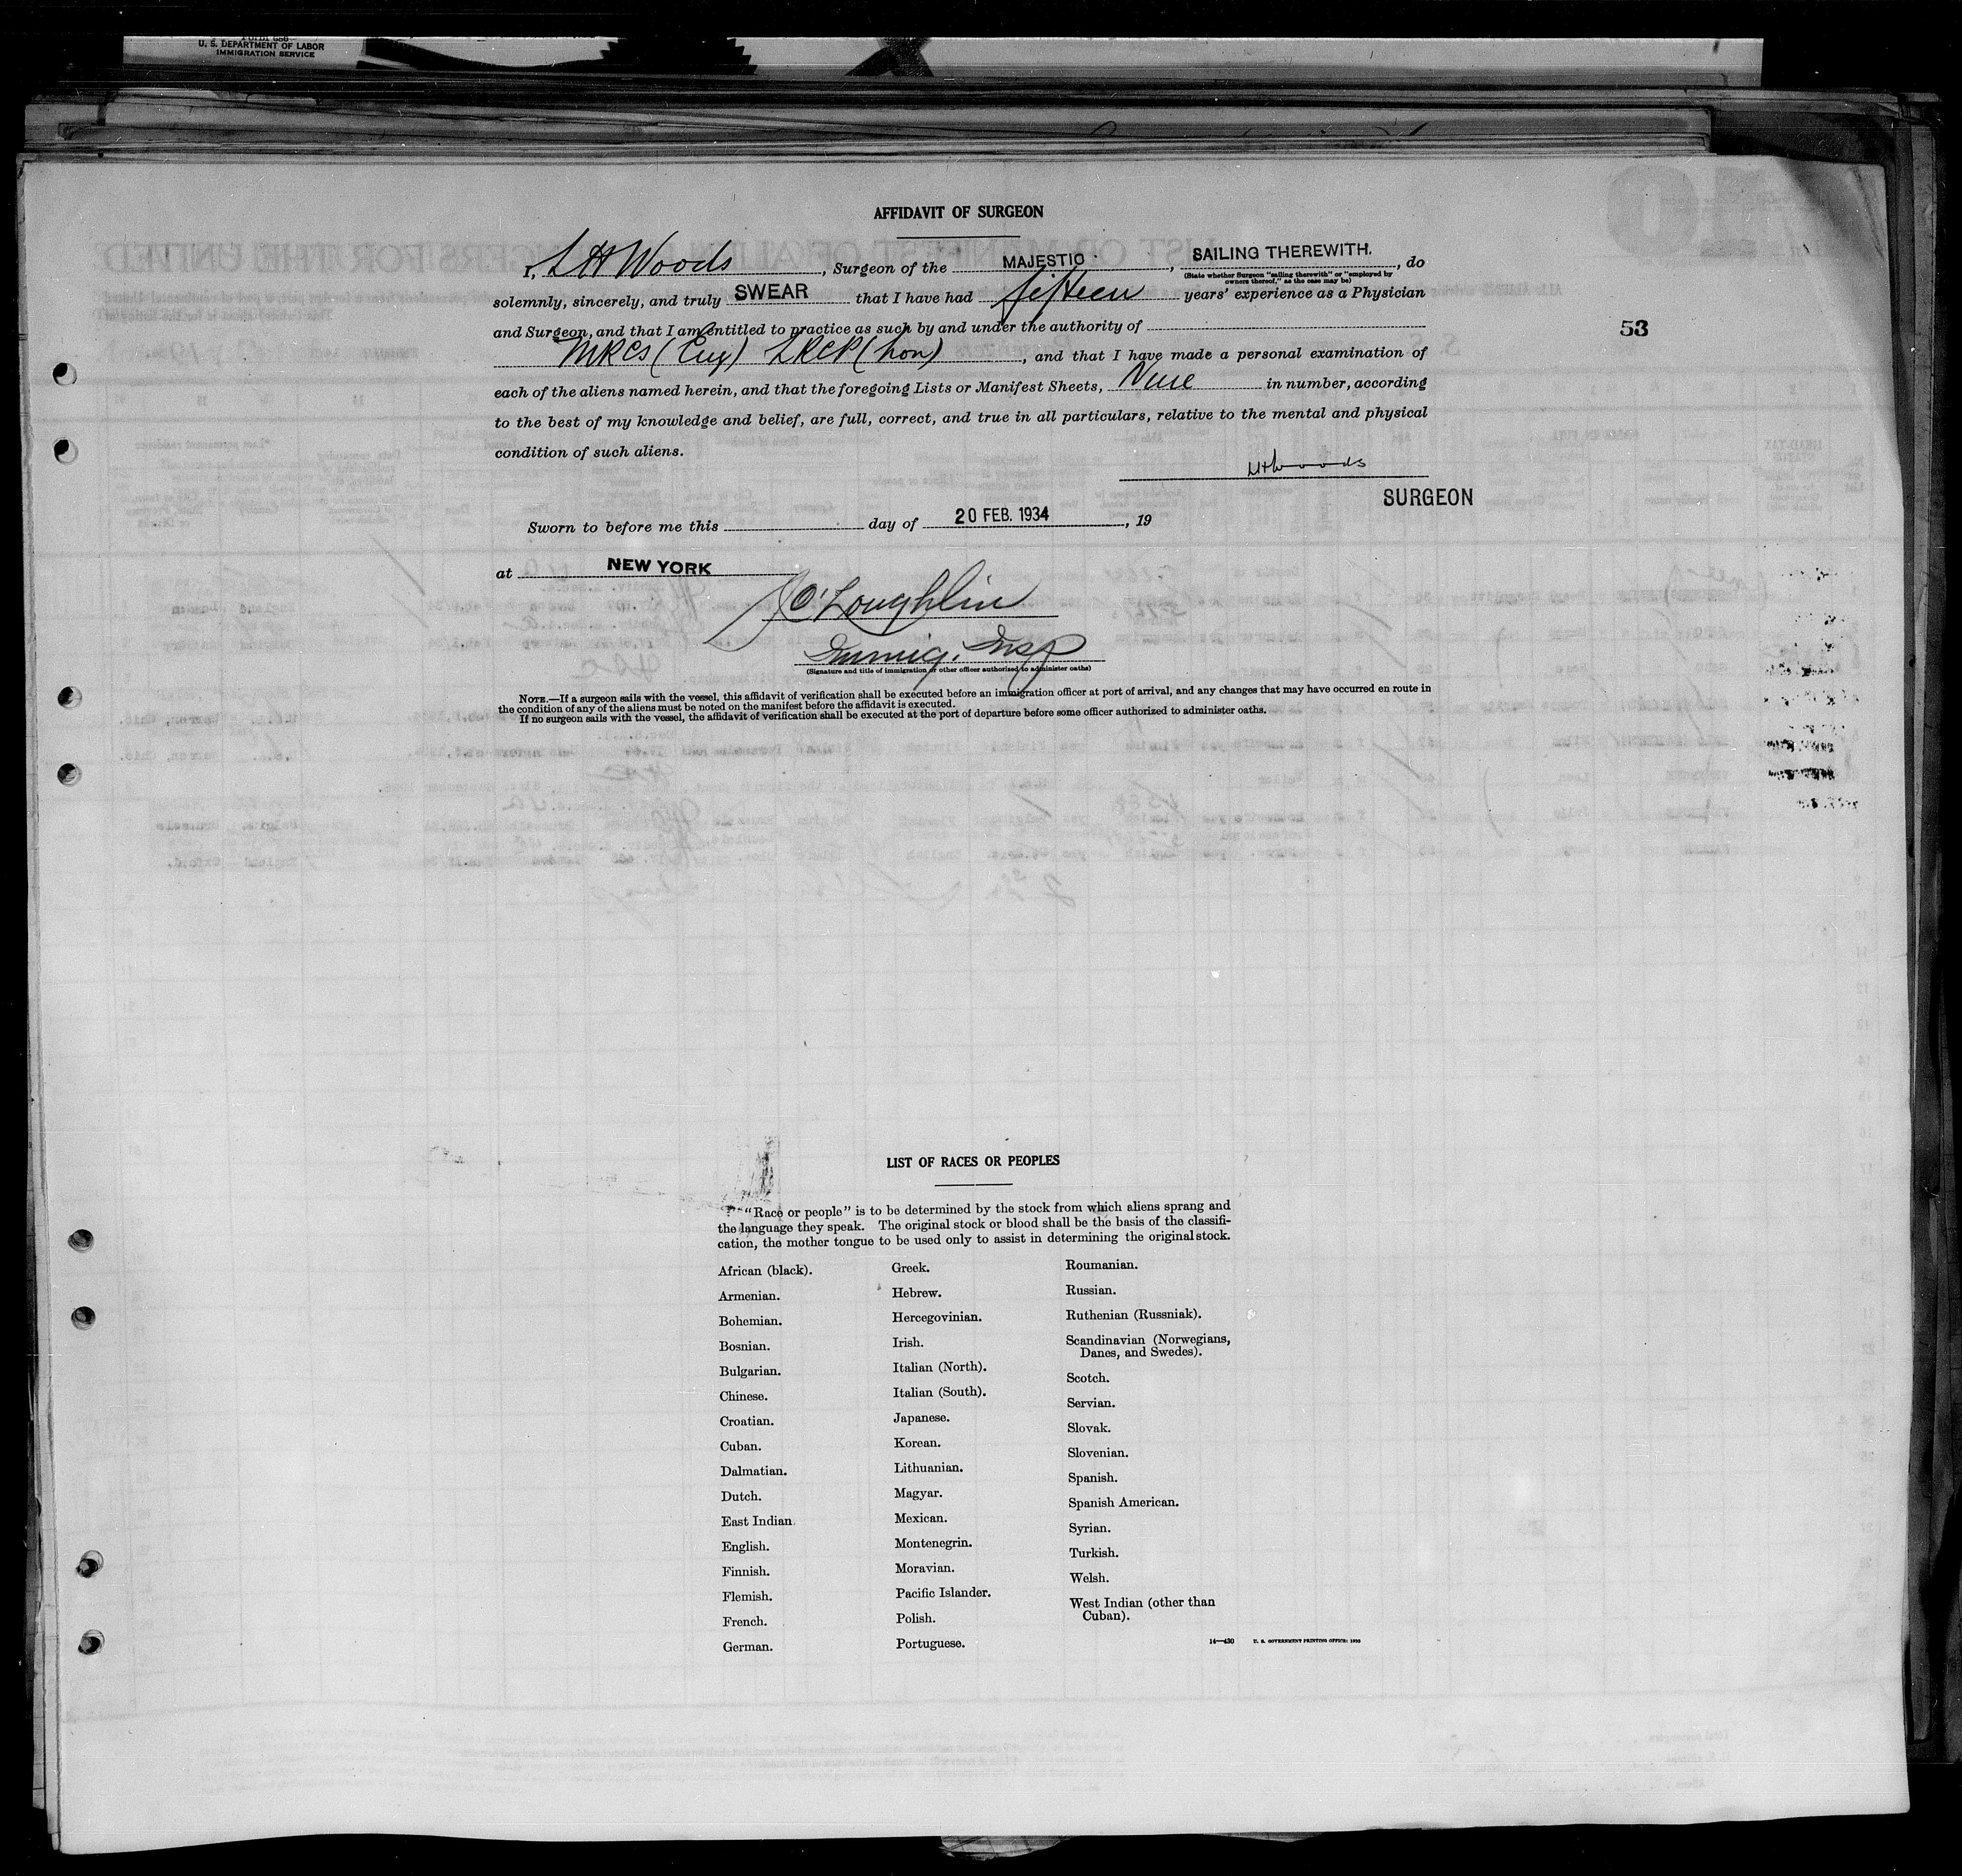 Form 686
U. S. DEPARTMENT OF LABOR
IMMIGRATION SERVICE
AFFIDAVIT OF SURGEON
I, L H Woods, Surgeon of the MAJESTIC, SAILING THEREWITH., do
(State whether Surgeon "sailing therewith" or "employed by
owners thereof," as the case may be)
solemnly, sincerely, and truly SWEAR that I have had fifteen years' experience as a Physician
and Surgeon, and that I am entitled to practice as such by and under the authority of
MRCS (Eng) LRCP (Lon), and that I have made a personal examination of
each of the aliens named herein, and that the foregoing Lists or Manifest Sheets, Nine in number, according
to the best of my knowledge and belief, are full, correct, and true in all particulars, relative to the mental and physical
condition of such aliens.
53
LHWoods
SURGEON
Sworn to before me this day of 20 FEB. 1934, 19
at NEW YORK
J O'Loughlin
Immig. Insp
(Signature and title of immigration or other officer authorized to administer oaths)
NOTE.—If a surgeon sails with the vessel, this affidavit of verification shall be executed before an immigration officer at port of arrival, and any changes that may have occurred en route in
the condition of any of the aliens must be noted on the manifest before the affidavit is executed.
If no surgeon sails with the vessel, the affidavit of verification shall be executed at the port of departure before some officer authorized to administer oaths.
LIST OF RACES OR PEOPLES
"Race or people" is to be determined by the stock from which aliens sprang and
the language they speak. The original stock or blood shall be the basis of the classifi-
cation, the mother tongue to be used only to assist in determining the original stock.
African (black).
Armenian.
Bohemian.
Bosnian.
Bulgarian.
Chinese.
Croatian.
Cuban.
Dalmatian.
Dutch.
East Indian
English.
Finnish.
Flemish.
French.
German.
Greek.
Hebrew.
Hercegovinian.
Irish.
Italian (North).
Italian (South).
Japanese.
Korean.
Lithuanian.
Magyar.
Mexican.
Montenegrin.
Moravian.
Pacific Islander.
Polish.
Portuguese.
Roumanian.
Russian.
Ruthenian (Russniak).
Scandinavian (Norwegians,
Danes, and Swedes).
Scotch.
Servian.
Slovak.
Slovenian.
Spanish.
Spanish American.
Syrian.
Turkish.
Welsh.
West Indian (other than
Cuban).
14—430 U. S. GOVERNMENT PRINTING OFFICE: